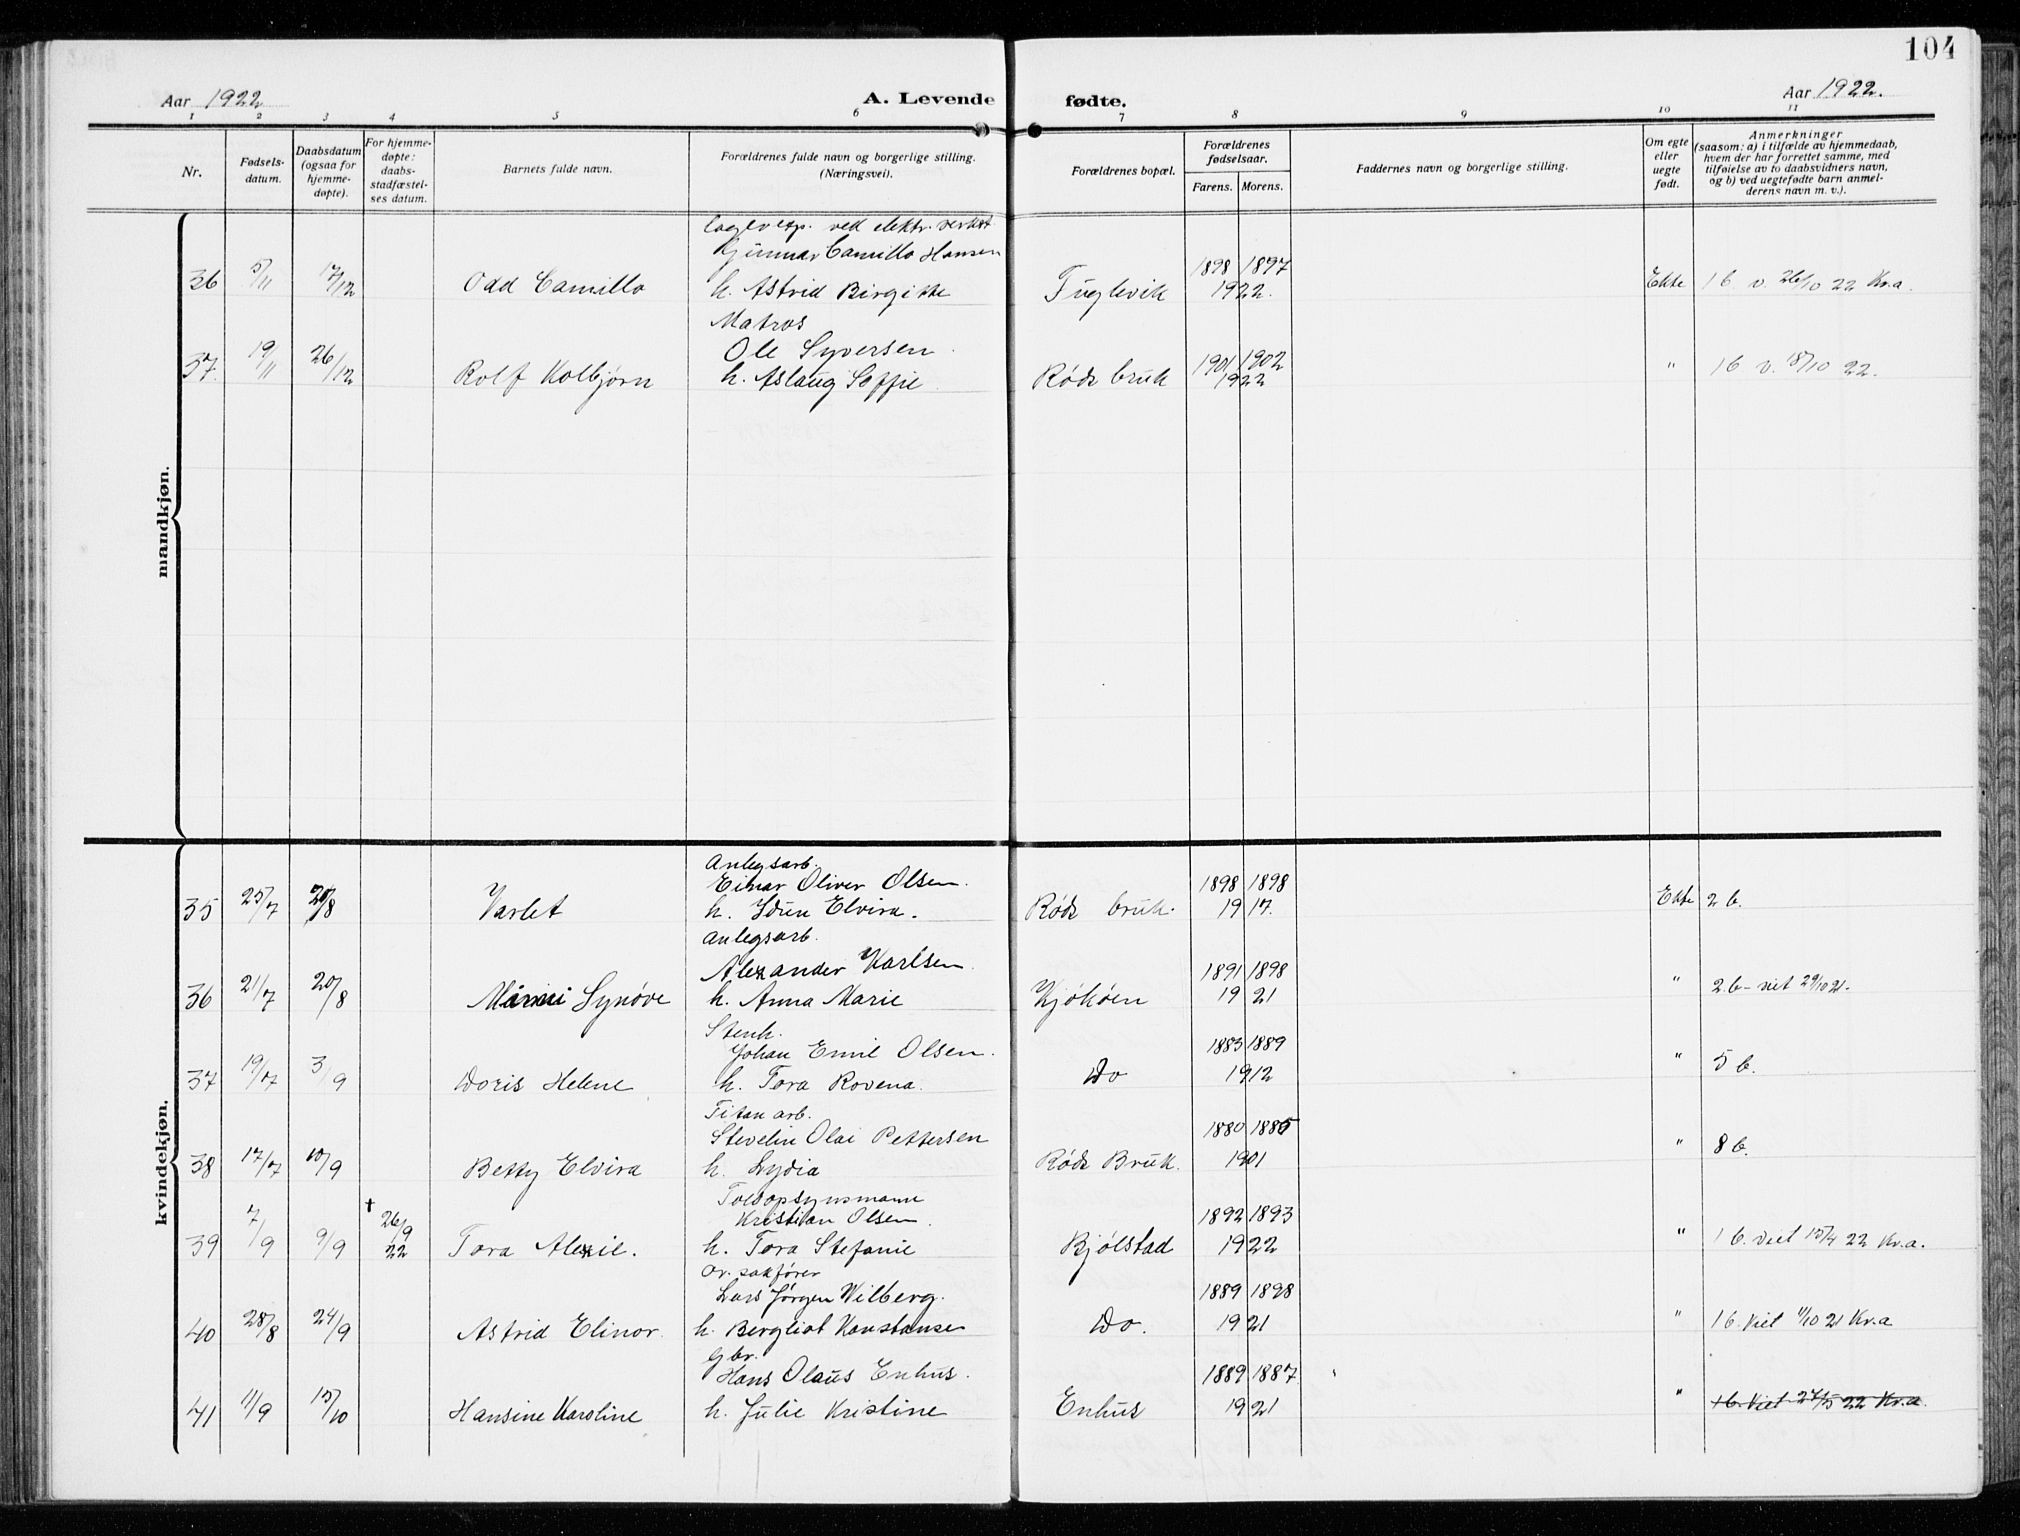 104
Aar 1922
A. Levende fødte.
Aar 1922.
1 2 3 4 5 6 7 8 9 10 11
Nr.
Fødsels-
datum.
Daabsdatum
(ogsaa for
hjemme-
døpte).
For hjemme-
døpte:
daabs-
stadfæstel-
ses datum.
Barnets fulde navn.
Forældrenes fulde navn og borgerlige stilling.
(Næringsvei).
Forældrenes bopæl.
Forældrenes
fødselsaar.
Farens. Morens.
Faddernes navn og borgerlige stilling.
Om egte
eller
uegte
født.
Anmerkninger
(saasom: a) i tilfælde av hjemmedaab,
hvem der har forrettet samme, med
tilføielse av to daabsvidners navn,
og b) ved uegtefødte barn anmel-
derens navn m. v.).
mandkjøn.
ved elektr. verket
Gunnar Camillo Hansen 1898 1897
36 5/11 17/12 Odd Camillo h. Astrid Birgitte Fuglevik 1922. Ekte 1 b v. 26/10 22 Kr.a.
Matros
Ole Syversen 1901 1902
37. 19/11 26/12 Rolf Kolbjørn h. Aslaug Soffie Røds bruk 1922 " 1 b v. 18/10 22.
kvindekjøn.
Anlegsarb.
Einar Oliver Olsen. 1898 1898
35 25/7 20/8 Varlet h. Idun Elvira. Røds bruk. 1917. Ekte 2 b.
Anlegsarb.
Alexander Karlsen. 1891 1898
36 21/7 20/8 Mimmi Synøve h. Anna Marie Kjøkøen 1921 " 2 b - viet 29/10 21.
Stenh.
Johan Emil Olsen. 1883 1889
37 19/7 3/9 Doris Helene h. Tora Rovena. Do 1912 " 5 b.
Titan arb.
Stevelin Olai Pettersen 1880 1885
38 17/7 10/9 Betty Elvira h. Lydia Røds Bruk. 1901 " 8 b.
Toldopsynsmann
Kristian Olsen. 1892 1893
39 7/9 9/9 † 26/9 22 Tora Alexie. h. Tora Stefanie Bjølstad 1922 " 1 b. viet 15/4 22 Kr.a.
Or. sakfører
Lars Jørgen Wilberg. 1889 1898
40 28/8 24/9 Astrid Elinor. h. Bergliot Konstanse Do. 1921 " 1 b. viet 11/10 21 Kr.a
Gbr.
Hans Olaus Enhus. 1889 1887
41 11/9 15/10 Hansine Karoline h. Julie Kristine Enhus 1921 " 1 b. viet 27/5 22 Kr.a.